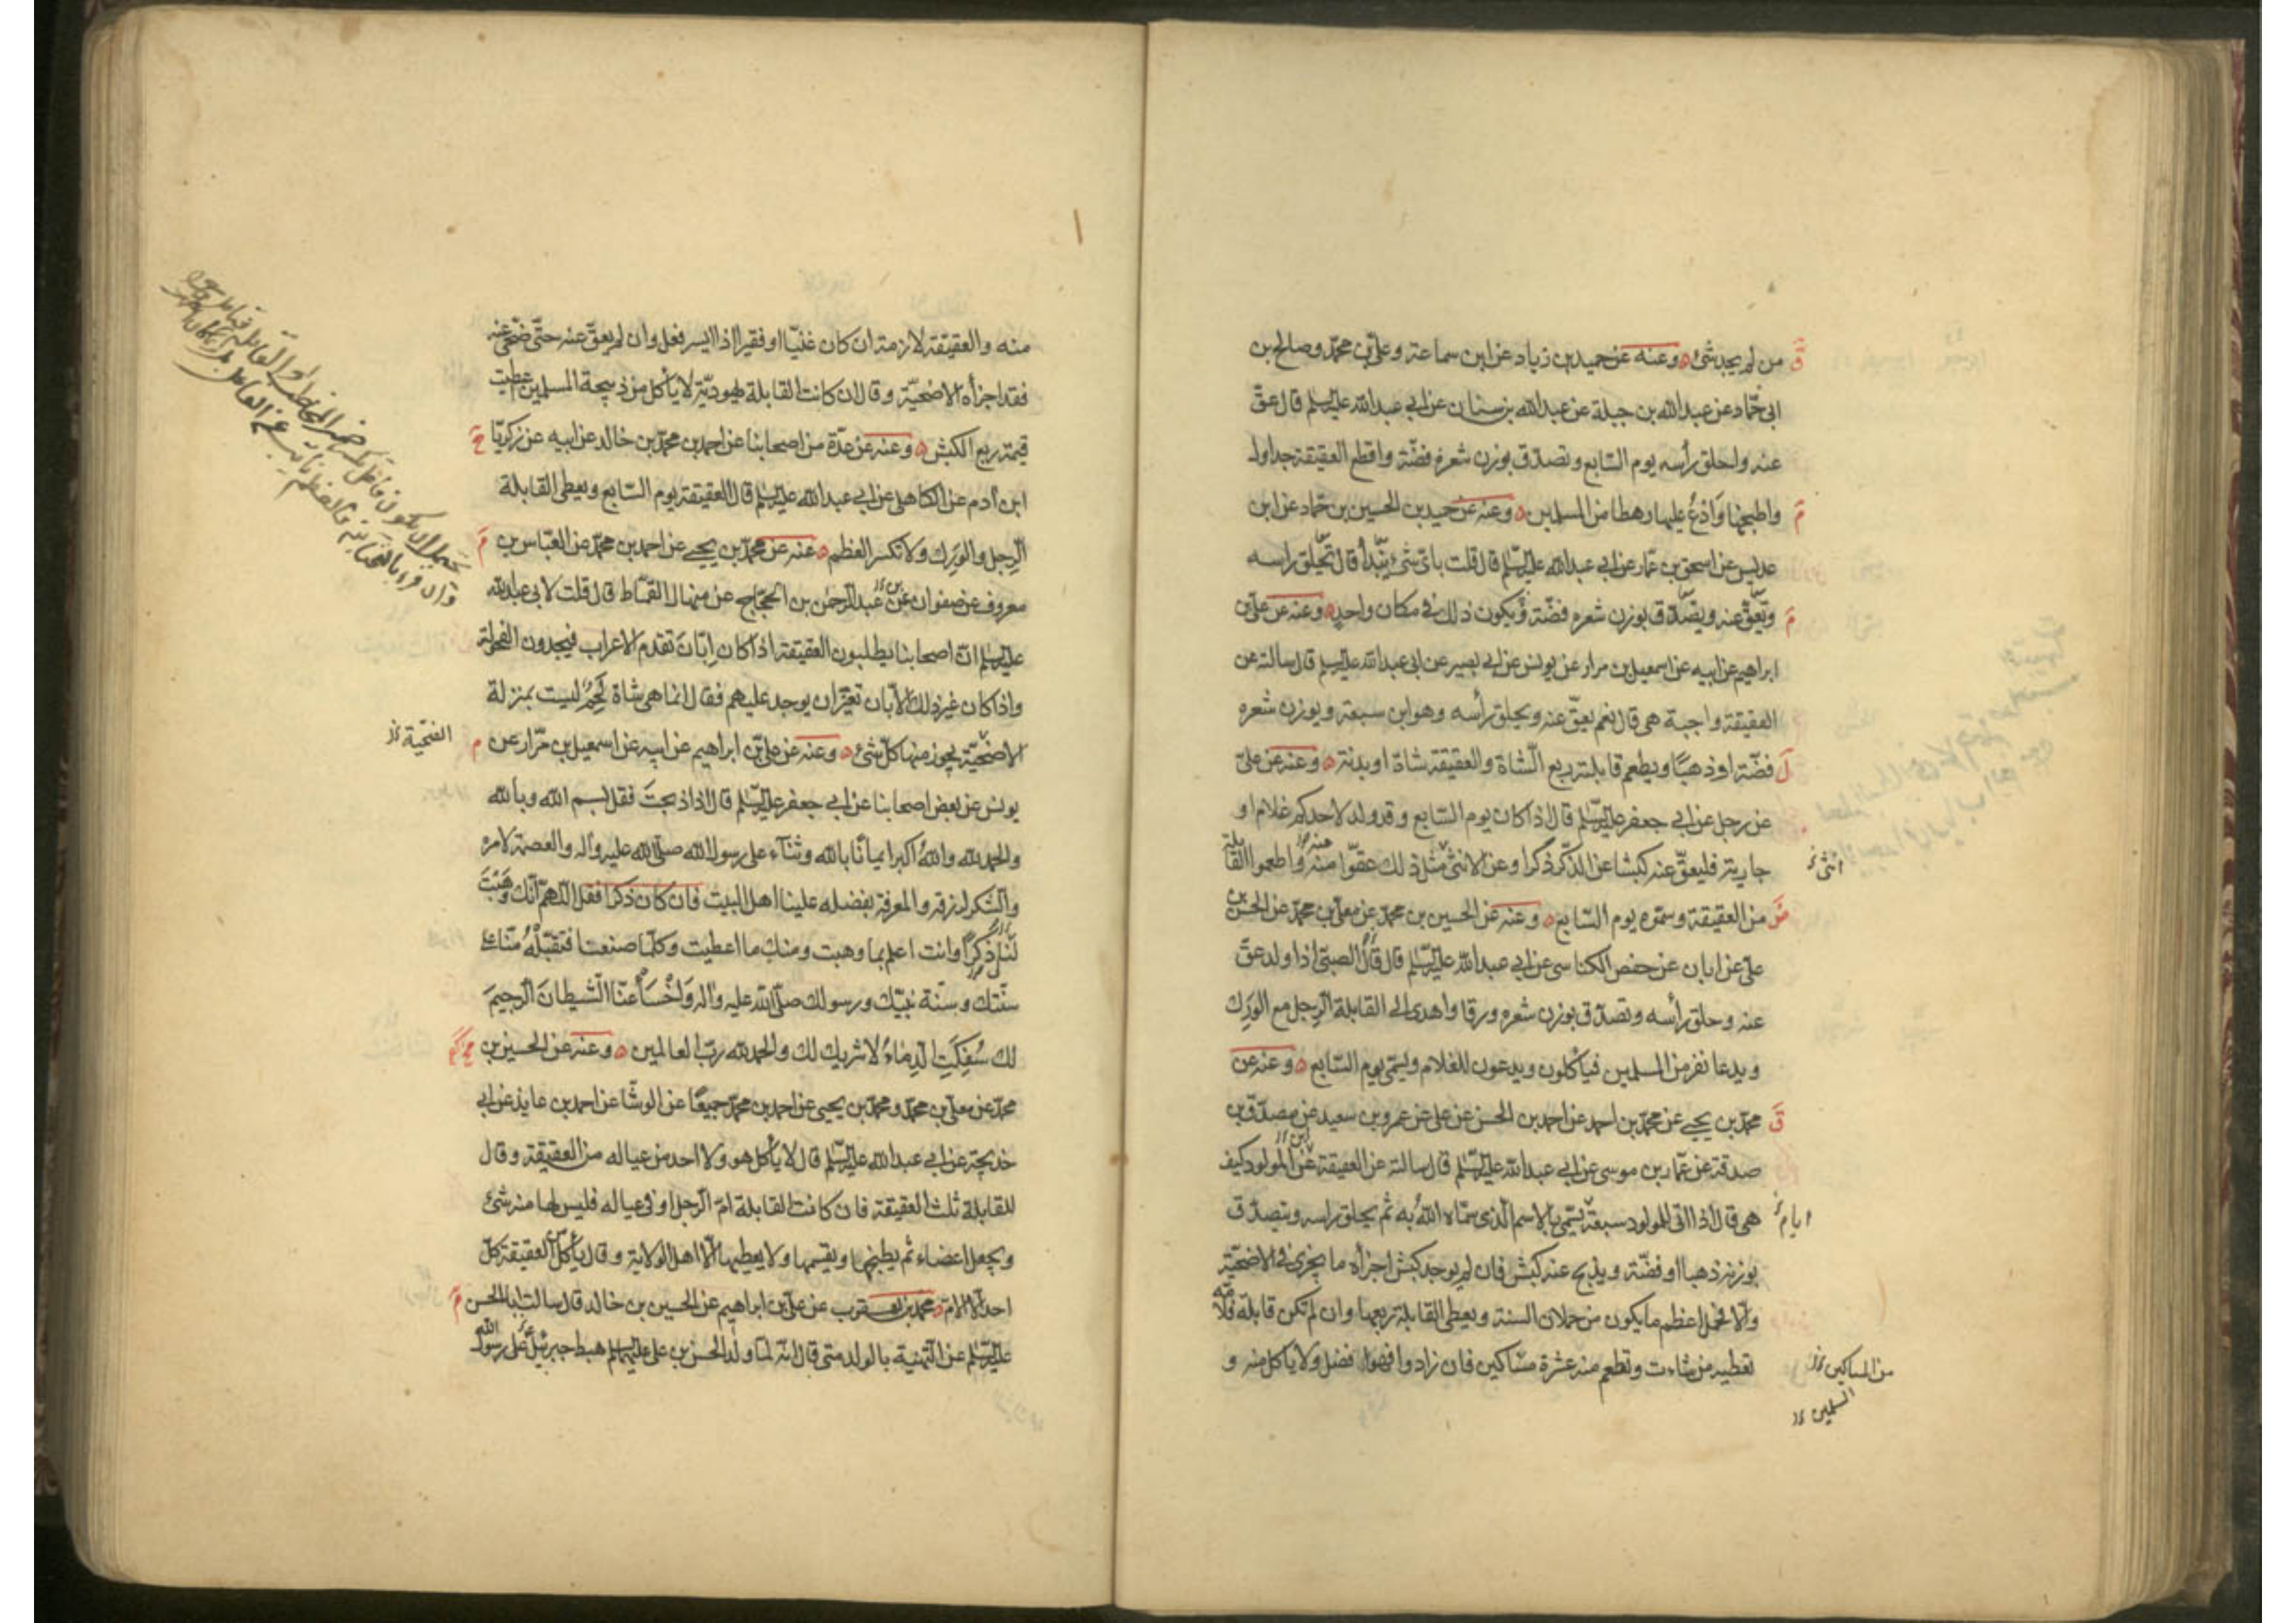 من لم يجد شئ ه وعنه عن حميد بن زياد عن ابن سماعة وعلى بن محمد وصالح بن
ابى حماد عن عبد الله بن جبلة عن عبد الله بن سنان عن ابى عبد الله عليه السلم قال عقّ
عنه واحلق رأسه يوم السابع وتصدق بوزن شعره فضّة واقطع العقيقة جداول
واطبخها وادعُ عليها رهطا من المسلمين ه وعنه عن حميد بن الحسين بن حماد عن ابن
عديس عن اسحق بن عمار عن ابى عبد الله عليه السلم قال قلت باىّ شئ يبدأ قال تحلق راسه
وتعقّ عنه ويصدّق بوزن شعره فضّة ويكون ذلك فى مكان واحد ه وعنه عن على بن
ابراهيم عن ابيه عن اسمعيل بن مرار عن يونس عن ابى بصير عن ابى عبد الله عليه السلم قال سالته عن
العقيقة واجبة هى قال نعم يعقّ عنه ويحلق رأسه وهو ابن سبعة ويوزن شعره
فضّة او ذهبًا ويطعم قابلته ربع الشاة والعقيقة شاة او بدنة ه وعنه عن علىّ
عن رجل عن ابى جعفر عليه السّلم قال اذا كان يوم السّابع وقد ولد لاحدكم غلام او
جارية فليعقّ عنه كبشا عن الذّكر ذكرا وعن الانثى مثل ذلك عقّوا منه واطعموا القابلة
انثى
من العقيقة وسمّوه يوم السّابع ه وعنه عن الحسين بن محمد عن معلى بن محمد عن الحسن بن
على عن ابان عن حفص الكناسى عن ابى عبد الله عليه السّلم قال قال الصبىّ اذا ولد عقّ
عنه وحلق رأسه وتصدّق بوزن شعره ورقا واهدى الى القابلة الرّجل مع الورك
ويدعا نفر من المسلمين فيأكلون ويدعون للغلام ويسمّى يوم السّابع ه وعنه عن
محمد بن يحيى عن محمد بن احمد عن احمد بن الحسن عن على عن عمرو بن سعيد عن مصدّق بن
صدقة عن عمّار بن موسى عن ابى عبد الله عليه السّلم قال سالته عن العقيقة عن المولود كيف
هى قال اذا اتى للمولود سبعة يسمّى بالاسم الّذى سمّاه اللهُ به ثم يحلق راسه ويتصدّق
ايام
بوزنه ذهبا او فضّة ويذبح عنه كبش فان لم يوجد كبش اجزأه ما يجزى فى الاضحيّة
والا فحمل اعظم ما يكون من حملان السنة ويعطى القابلة ربعها وان لم تكن قابلة فلأمّه
تعطيه من شاءت وتطعم منه عشرة مسّاكين فان زادوا فهو افضل ولا ياكل منه و
من المساكين
المسلمين
منه والعقيقة لازمة ان كان غنيّا او فقيرا اذا ايسر فعل وان لم يعقّ عنه حتّى ضحّى عنه
فقد اجزأه الاضحيّة وقال ان كانت القابلة يهوديّة لا يأكل من ذبيحة المسلمين اعطيت
قيمة ربع الكبش ه وعنه عن عدّة من اصحابنا عن احمد بن محمد بن خالد عن ابيه عن زكريّا
ابن آدم عن الكاهلى عن ابى عبد الله عليه السّلم قال العقيقة يوم السّابع ويعطى القابلة
الرّجل والورك ولا تكسر العظم ه عنه عن محمد بن يحيى عن احمد بن محمد عن العبّاس بن
معروف عن صفوان عن عبد الرّحمن بن الحجّاج عن منهال القمّاط قال قلت لابى عبد الله
عليه السّلم انّ اصحابنا يطلبون العقيقة اذا كان ابّان تقدم الاعراب فيجدون الفحولة
واذا كان غير ذلك الابّان تعزّ ان يوجد عليهم فقال انما هى شاة لحم ليست بمنزلة
الاضحيّة يجوز منها كلّ شئ ه وعنه عن علىّ بن ابراهيم عن ابيه عن اسمعيل بن مرّار عن
يونس عن بعض اصحابنا عن ابى جعفر عليه السّلم قال اذا ذبحتَ فقل بسم الله وبالله
والحمد لله واللهُ اكبر ايمانًا بالله وثناء على رسول الله صلى الله عليه وآله والعصمة لامره
والشّكر لرزقه والمعرفة بفضله علينا اهل البيت فان كان ذكرا فقل اللّهم انّك وَهَبْتَ
لنا ذكرًا وانت اعلم بما وهبت ومنك ما اعطيت وكلّما صنعنا فتقبّلْهُ منّا على
سنّتك وسنّة نبيّك ورسولك صلّى الله عليه وآله واخْسَأ عنّا الشّيطانَ الرّجيمَ
لك سُفِكَتِ الدِماءُ لا شريك لك والحمد لله ربّ العالمين ه وعنه عن الحسين بن
محمد عن معلى بن محمد ومحمد بن يحيى عن احمد بن محمد جميعًا عن الوشّا عن احمد بن عايذ عن ابى
خديجة عن ابى عبد الله عليه السّلم قال لا يأكل هو ولا احد من عياله من العقيقة وقال
للقابلة ثلث العقيقة فان كانت القابلة امّ الرّجل او فى عياله فليس لها منه شئ
ويجعل اعضاء ثم يطبخها ويقسمها ولا يعطيها الّا اهل الولاية وقال يأكل من العقيقة كلّ
احد الّا الامّ ه محمد بن يعقوب عن على بن ابراهيم عن الحسين بن خالد قال سالت ابا الحسن
عليه السّلم عن التّهنية بالولد متى قال انّه لمّا ولد الحسن بن على عليهما السلم هبط جبرئيل على رسول الله